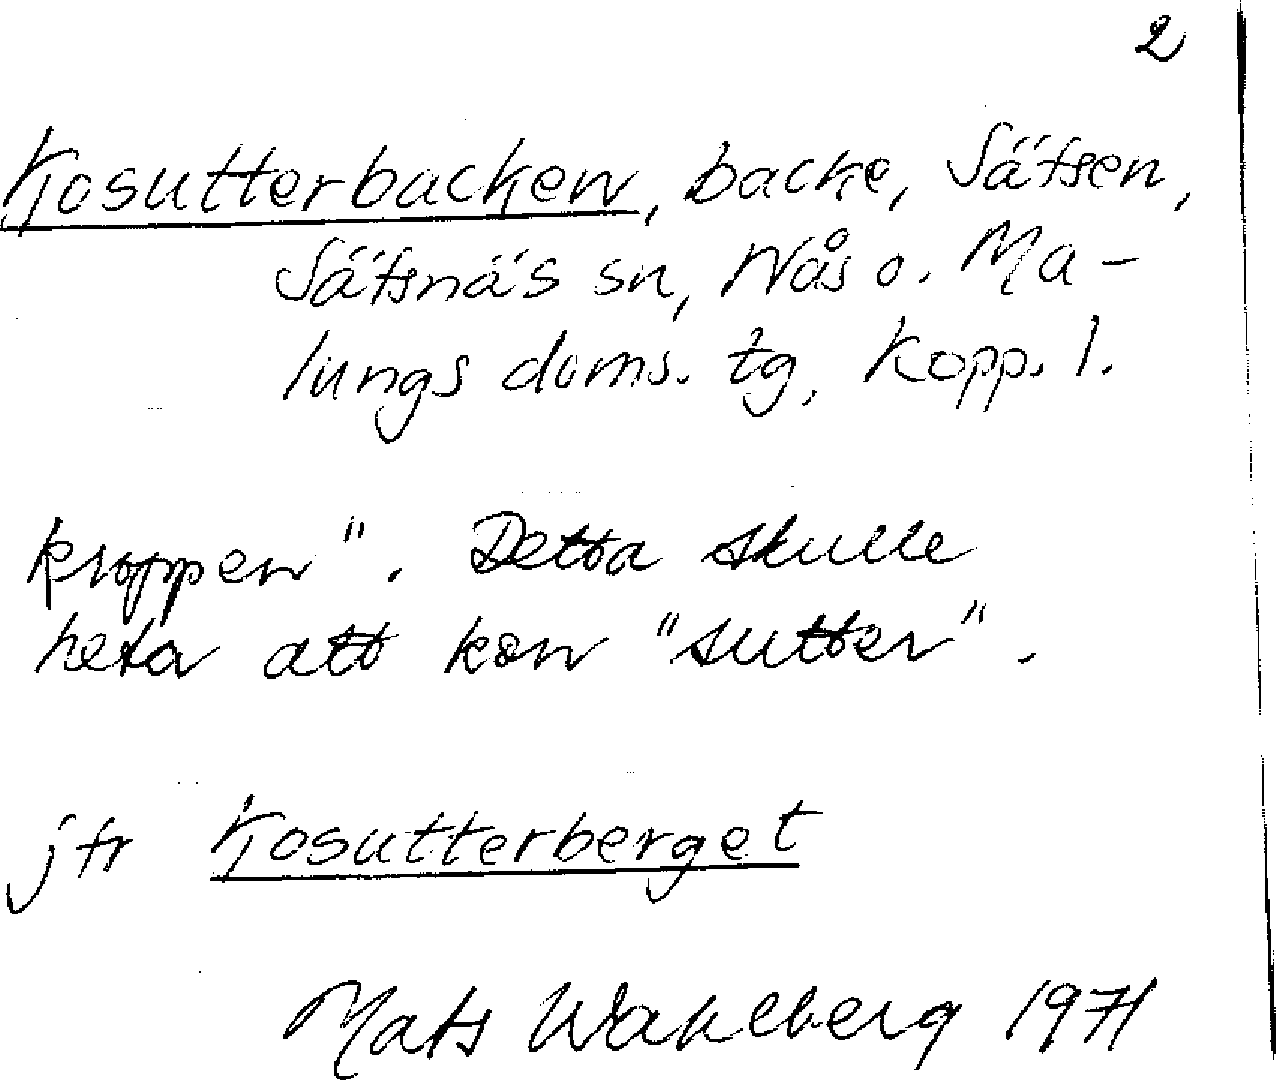 2
Kosutterbacken, backe, Säfsen,
Säfsnäs sn, Nås o. Ma-
lungs doms. tg, Kopp. l.
kroppen". Detta skulle
heta att kon "sutter".
jfr Kosutterberget
Mats Wahlberg 1971